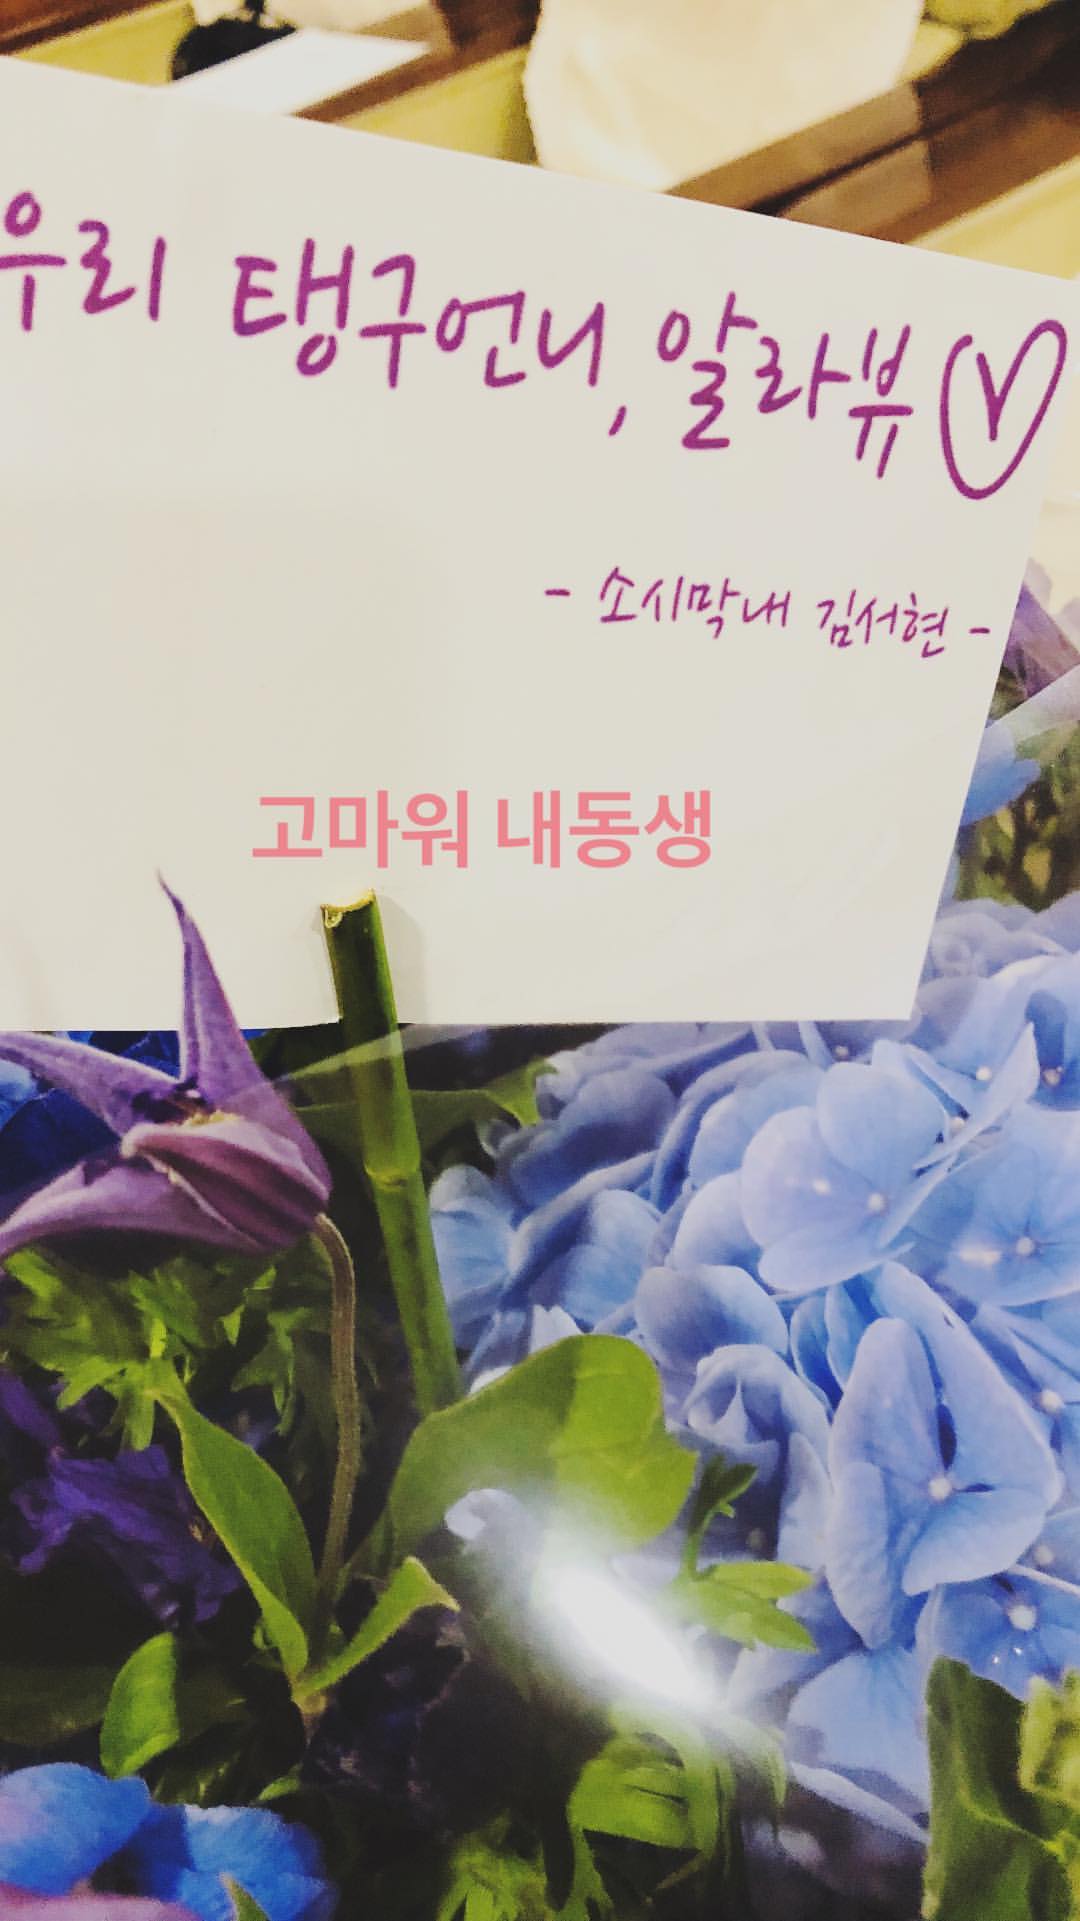 우리 탱구언니, 알라뷰
- 소시막내 김서현 -
고마워 내동생